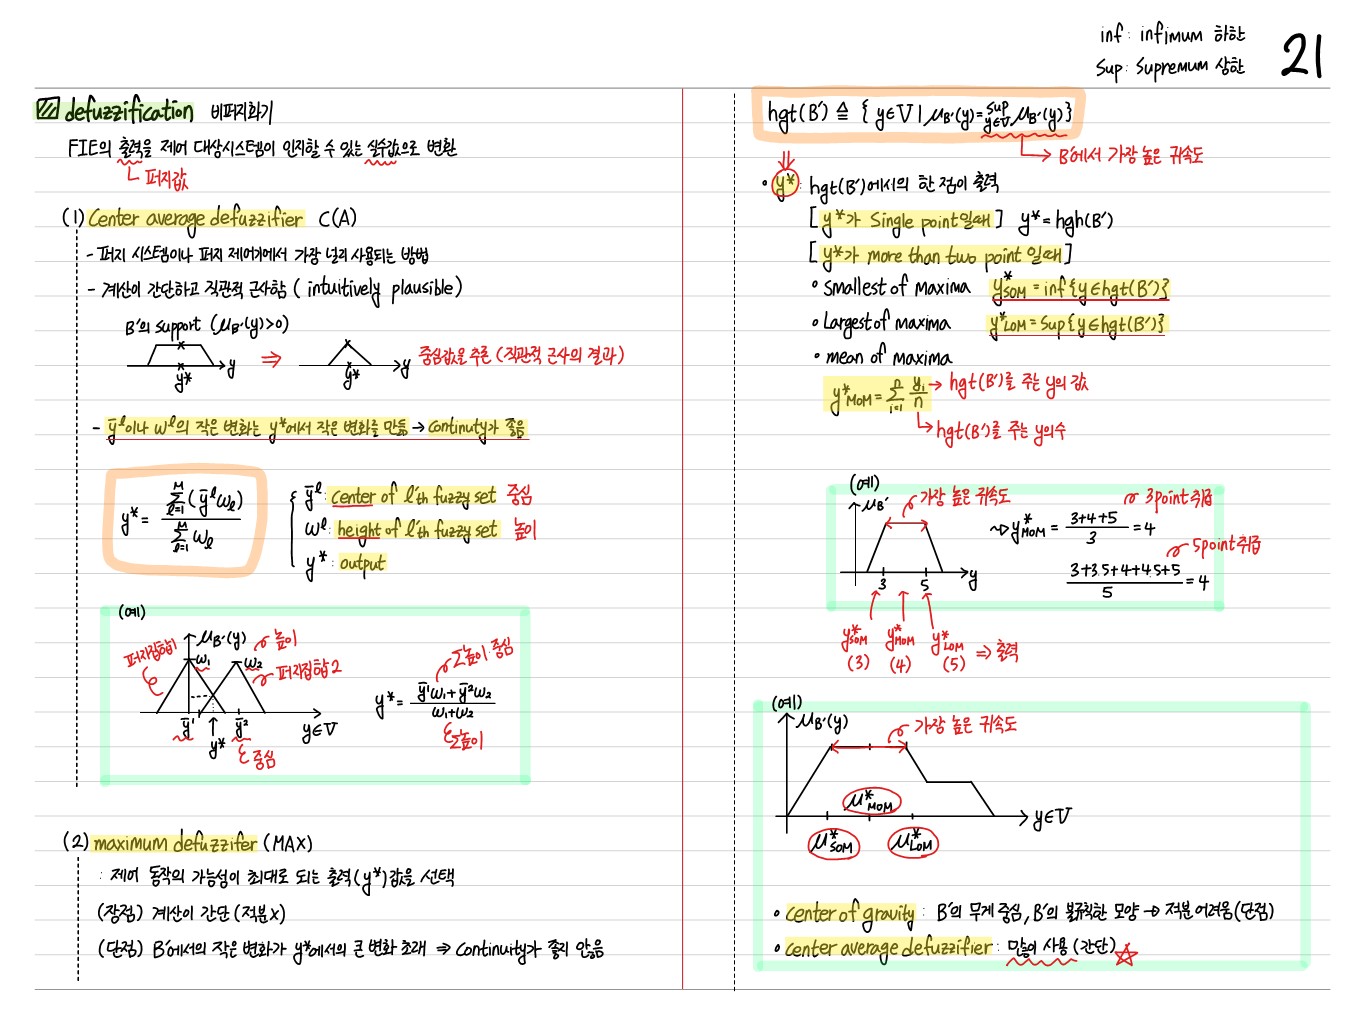 inf: infimum 하한
Sup: Supremum 상한
21
defuzzification 비퍼지화기
FIE의 출력을 제어 대상시스템이 인지할 수 있는 실수값으로 변환
퍼지값
(1) Center average defuzzifier C(A)
- 퍼지 시스템이나 퍼지 제어기에서 가장 널리 사용되는 방법
- 계산이 간단하고 직관적 근사함 (intuitively plausible)
B'의 support (μB'(y)>0)
y* y ⇒ y* y 중심값을 추론 (직관적 근사의 결과)
- ȳˡ이나 wˡ의 작은 변화는 y*에서 작은 변화를 만듦 → continuity가 좋음
y* = Σ(l=1..M)(ȳˡ wₗ) / Σ(l=1..M) wₗ
ȳˡ: center of l'th fuzzy set 중심
wˡ: height of l'th fuzzy set 높이
y*: output
(예)
퍼지집합1 μB'(y) 높이
w₁ w₂ 퍼지집합2
ȳ¹ y* ȳ² y∈V
중심
Σ높이 중심
y* = (ȳ¹w₁+ȳ²w₂) / (w₁+w₂)
Σ높이
(2) maximum defuzzifer (MAX)
: 제어 동작의 가능성이 최대로 되는 출력(y*)값을 선택
(장점) 계산이 간단 (적분x)
(단점) B'에서의 작은 변화가 y*에서의 큰 변화 초래 ⇒ continuity가 좋지 않음
hgt(B') ≙ {y∈V | μB'(y)=sup y∈V μB'(y)}
→ B'에서 가장 높은 귀속도
• y*: hgt(B')에서의 한 점이 출력
[y*가 Single point일때] y*=hgh(B')
[y*가 more than two point 일때]
• smallest of maxima y*SOM = inf{y∈hgt(B')}
• Largest of maxima y*LOM = Sup{y∈hgt(B')}
• mean of maxima
y*MOM = Σ(i=1..n) yi/n → hgt(B')를 주는 y의 값
→ hgt(B')를 주는 y의수
(예)
μB' 가장 높은 귀속도
3 5 y
y*SOM (3) y*MOM (4) y*LOM (5) ⇒ 출력
3point 취급
y*MOM = (3+4+5)/3 = 4
5point 취급
(3+3.5+4+4.5+5)/5 = 4
(예)
μB'(y) 가장 높은 귀속도
μ*MOM
y∈V
μ*SOM μ*LOM
• center of gravity : B'의 무게 중심, B'의 불규칙한 모양 → 적분 어려움(단점)
• center average defuzzifier : 많이 사용 (간단) ☆